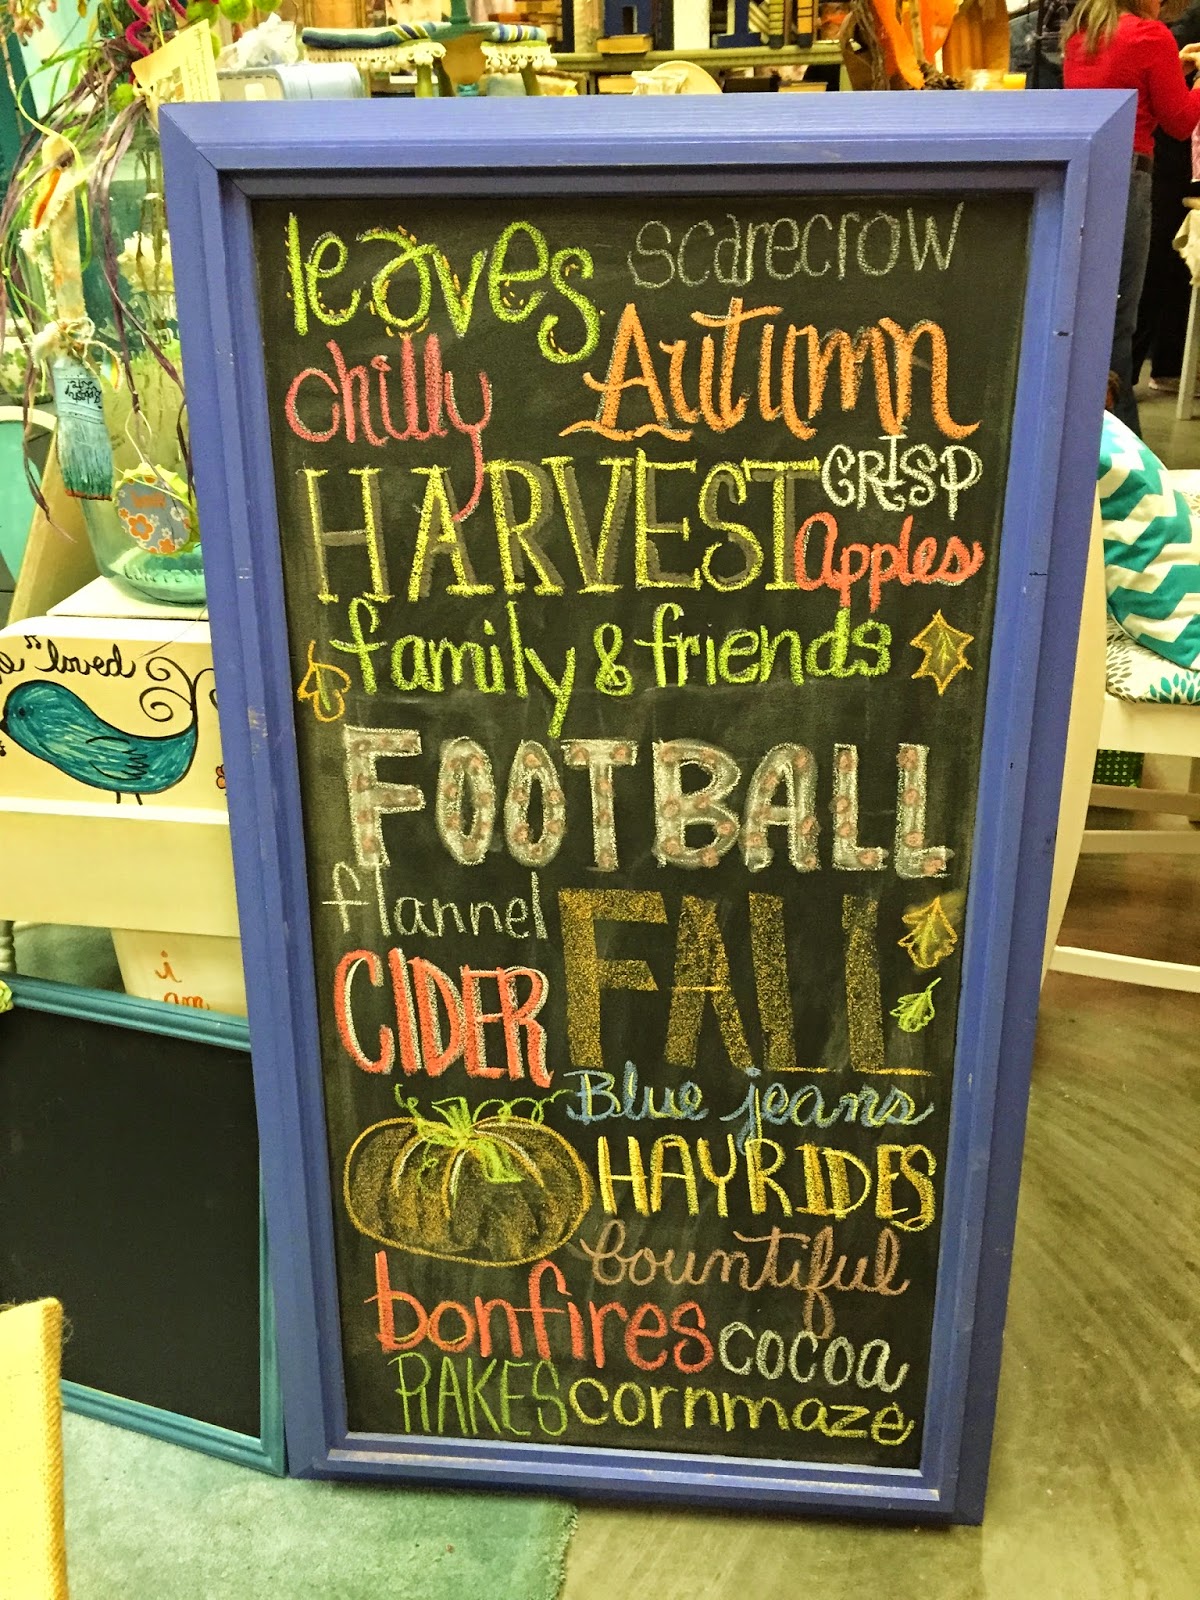 leaves scarecrow
chilly Autumn
HARVEST CRISP
Apples
family & friends
FOOTBALL
flannel FALL
CIDER
Blue jeans
HAYRIDES
bountiful
bonfires cocoa
RAKES cornmaze
"loved
i
am